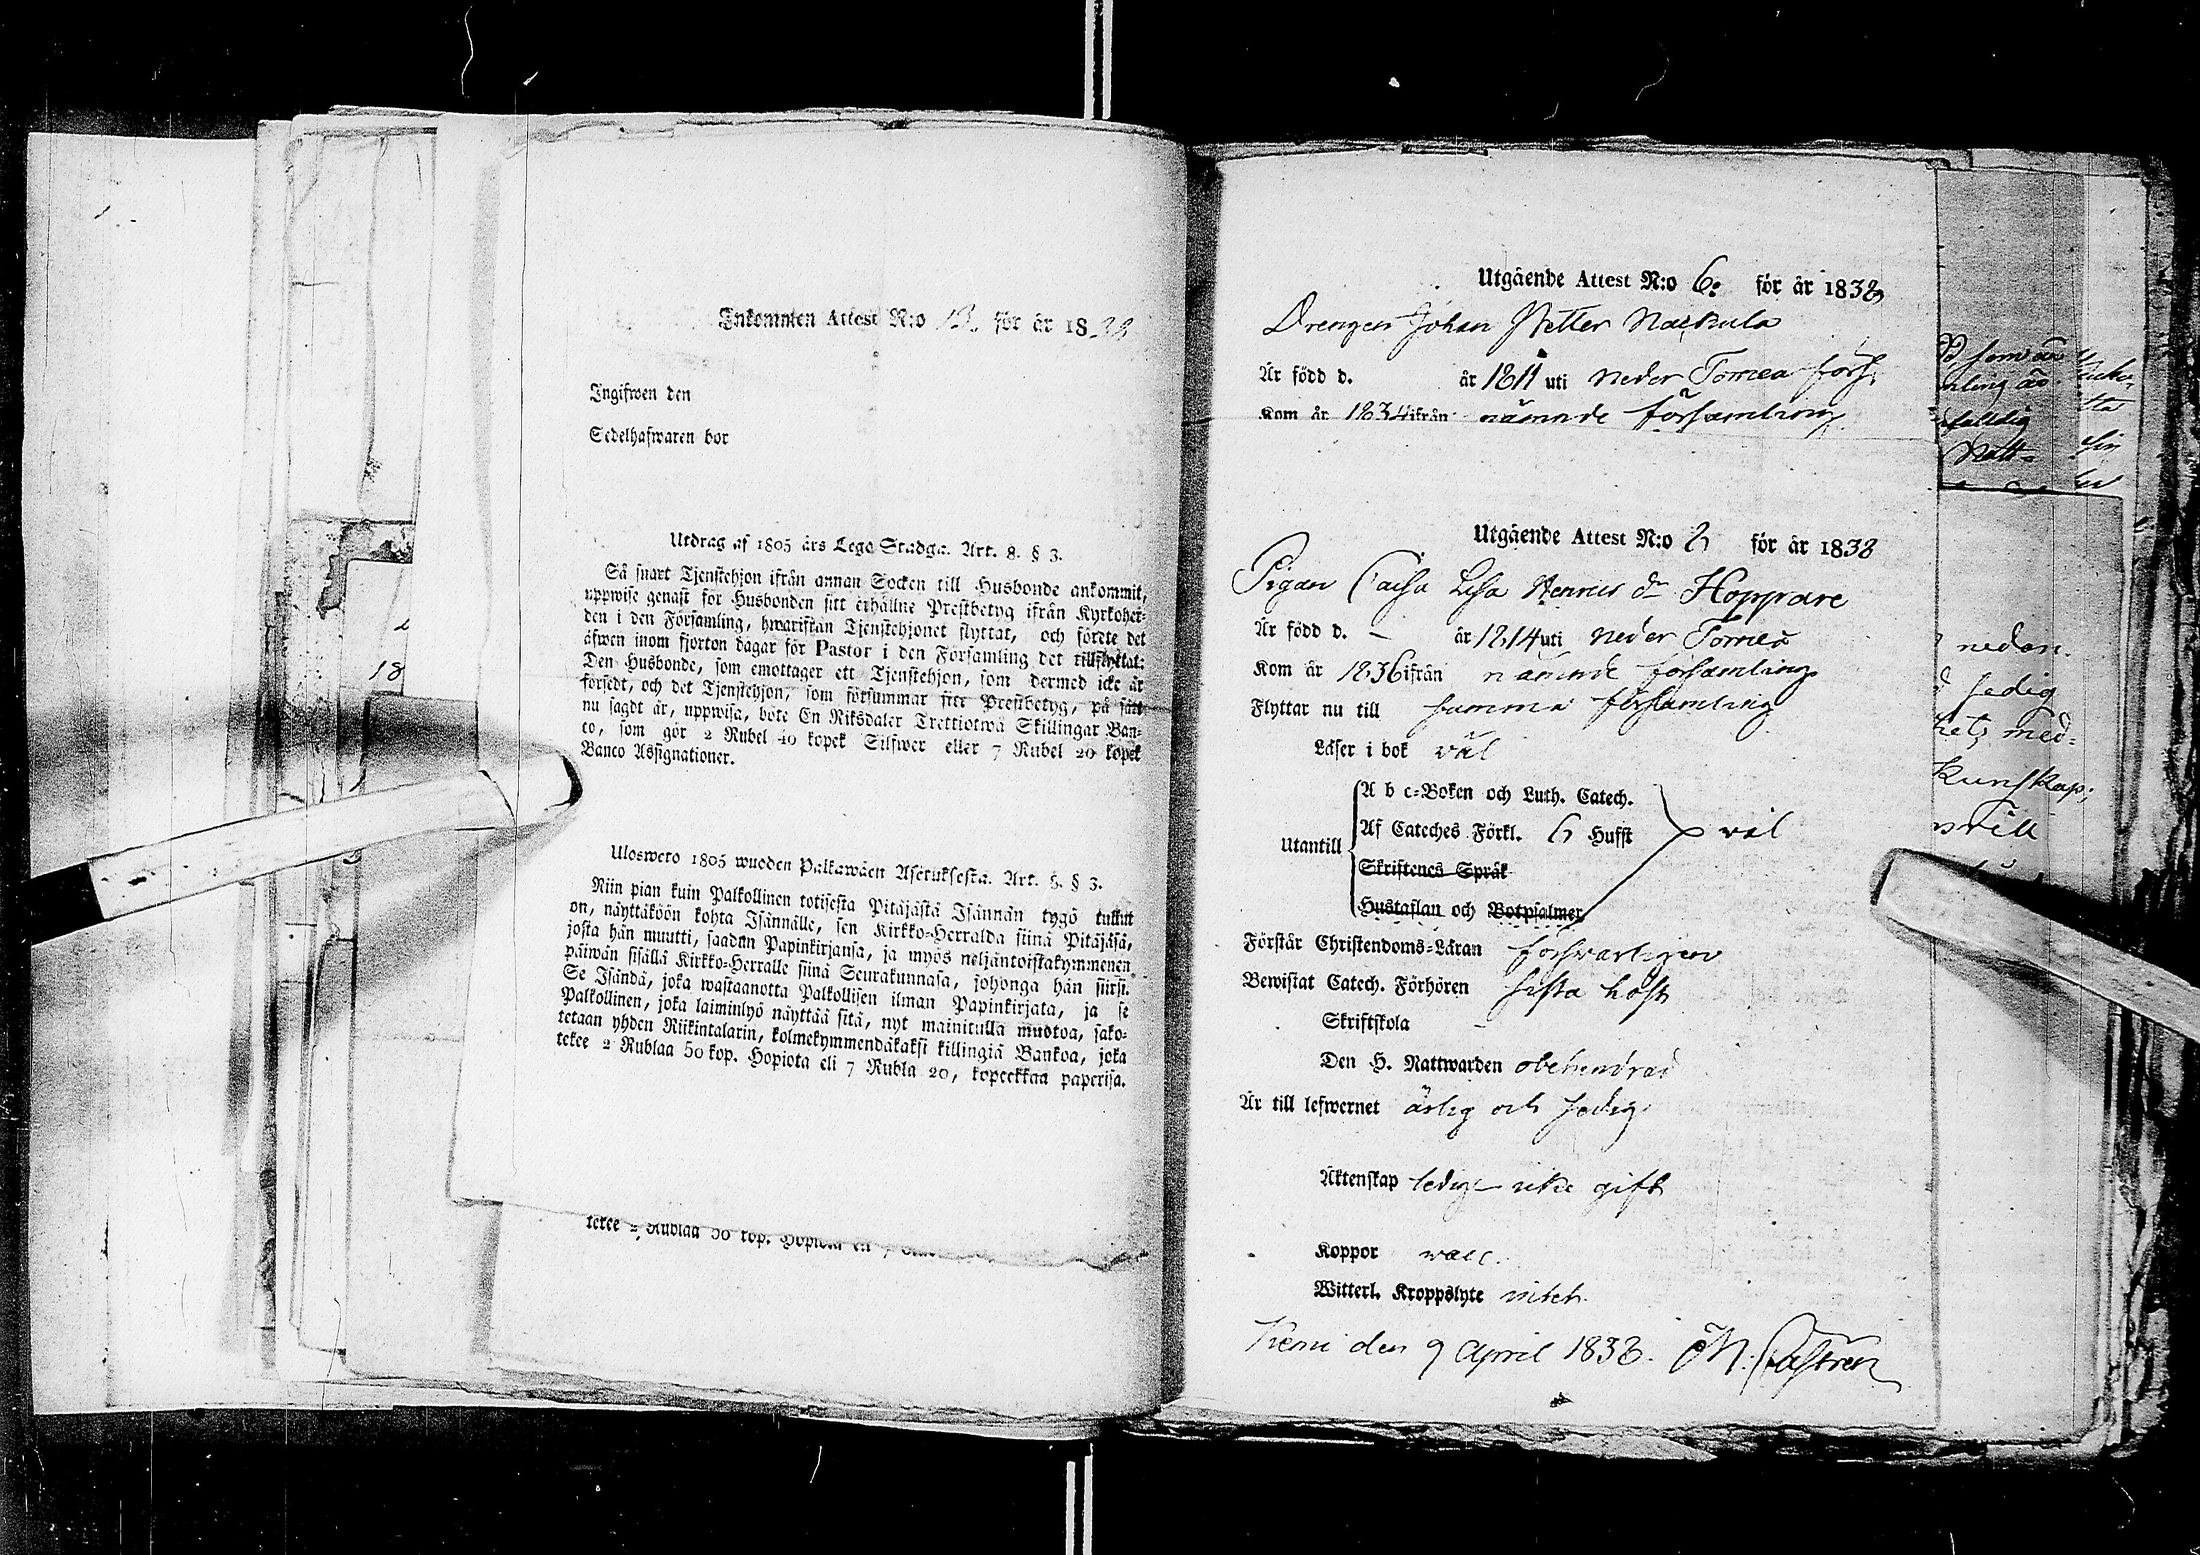 Inkommen Attest N:o 13. för år 1838
Ingifwen den
Sedelhafwaren bor
Utdrag af 1805 års Lego Stadga. Art. 8. § 3.
Så snart Tjenstehjon ifrån annan Socken till Husbonde ankommit,
uppwise genast för Husbonden sitt erhållne Prestbetyg ifrån Kyrkoher-
den i den Församling, hwarifrån Tjenstehjonet flyttat, och förete det
äfwen inom fjorton dagar för Pastor i den Församling det tillflyttat:
Den Husbonde, som emottager ett Tjenstehjon, som dermed icke är
försedt, och det Tjenstehjon, som försummar sitt Prestbetyg, på sätt
nu sagdt är, uppwisa, böte En Riksdaler Trettiotwå Skillingar Ban-
co, som gör 2 Rubel 40 kopek Silfwer eller 7 Rubel 20 kopek
Banco Assignationer.
Uloswето 1805 wuoden Palkawäen Asetuksesta. Art. 8. § 3.
Niin pian kuin Palkollinen toisesta Pitäjästä Isännän tygö tullut
on, näyttäköön kohta Isännälle, sen Kirkko-Herralda siinä Pitäjäsä,
josta hän muutti, saadun Papinkirjansa, ja myös neljäntoistakymmenen
päiwän sisällä Kirkko-Herralle siinä Seurakunnasa, johonga hän siirsi.
Se Isändä, joka wastaanotta Palkollisen ilman Papinkirjata, ja se
Palkollinen, joka laiminlyö näyttää sitä, nyt mainitulla muotoa, sako-
tetaan yhden Riikintalarin, kolmekymmendäkaksi killingiä Bankoa, joka
tekee 2 Rublaa 50 kop. Hopiota eli 7 Rubla 20, kopeekkaa paperisa.
tekee 2 Rublaa 50 kop. Hopiota eli 7
18
Utgående Attest N:o 6: för år 1838
Drengen Johan Petter Naskula
Är född d. år 1811 uti Neder Torneå förs.
Kom år 1834 ifrån nämnde församling
Utgående Attest N:o 2 för år 1838
Pigan Caisa Lisa Henrics dr Hoppare
Är född d. – år 1814 uti Neder Torneå
Kom år 1836 ifrån nämnde församling
Flyttar nu till samma församling
Läser i bok väl
A b c-Boken och Luth. Catech.
Utantill Af Cateches Förkl. 6 Hufst väl
Skriftenes Språk
Hustaflan och Botpsalmer
Förstår Christendoms-Läran försvarligen
Bewistat Catech. Förhören sista höst
Skriftskola –
Den H. Nattwarden obehindrad
Är till lefwernet ärlig och sedig
Äktenskap ledig – icke gift
Koppor
Witterl. Kroppslyte intet
Kemi den 9 April 1838. M. Castrén
nedan.
sedig
kunskap;